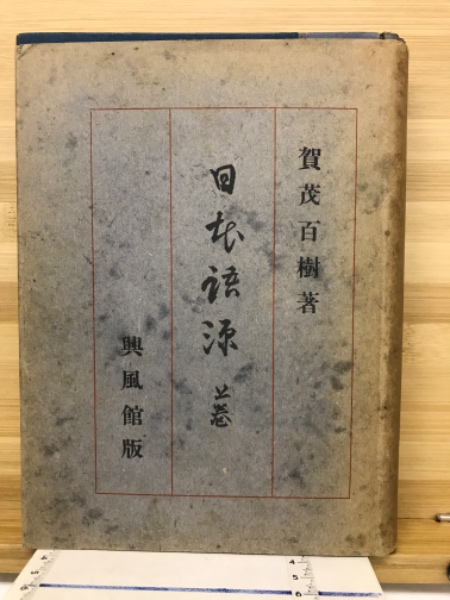 賀茂百樹著
日本語源 上巻
興風館版
4
5
6